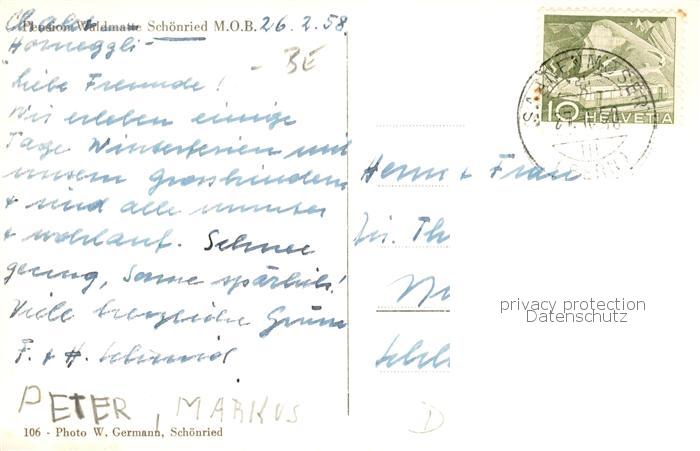 Chalet
Pension Waldmatte Schönried M.O.B. 26. 2. 58
Horneggli -
- BE
Liebe Freunde!
Wir erleben einige
Tage Winterferien mit
unsern Grosskindern
+ sind alle munter
+ wohlauf. Schnee
genug, Sonne spärlich!
Viele herzliche Grüsse
F. + H. Schmid
PETER, MARKUS
106 - Photo W. Germann, Schönried
10 HELVETIA
SAANENMÖSER
Herrn + Frau
Th
privacy protection
Datenschutz
D